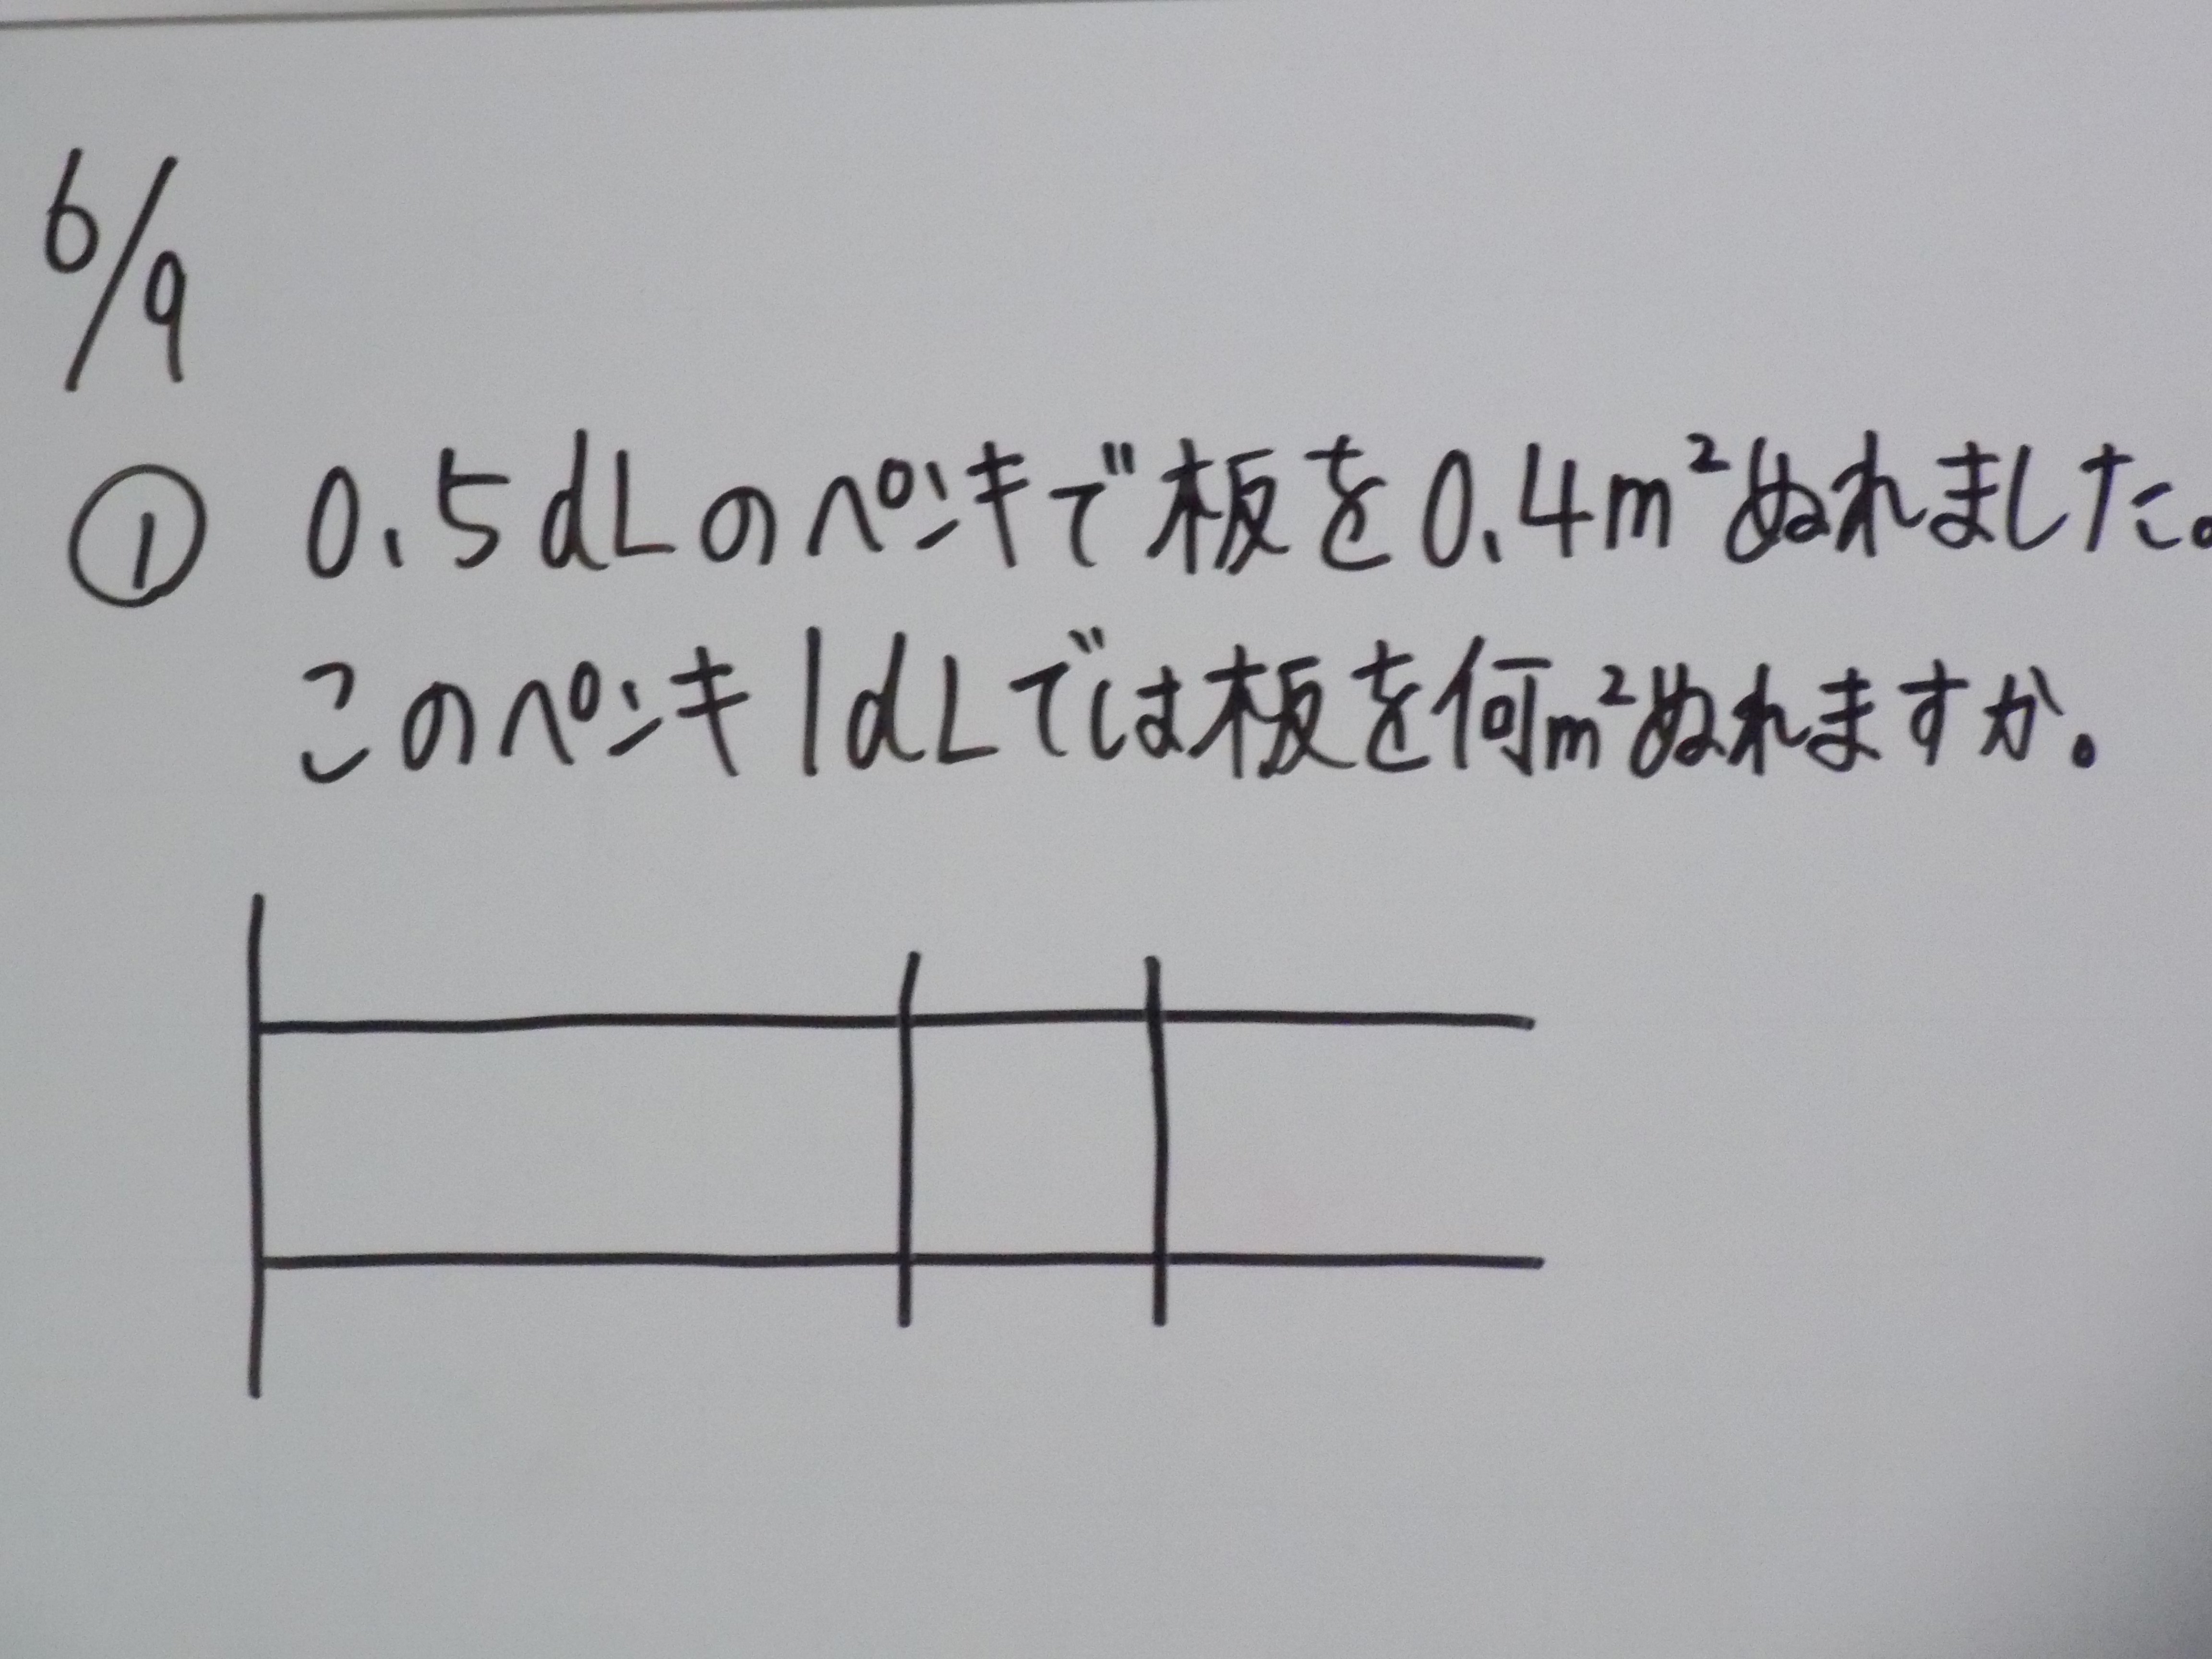 6/9
① 0.5dLのペンキで板を0.4m²ぬれました。
このペンキ1dLでは板を何m²ぬれますか。